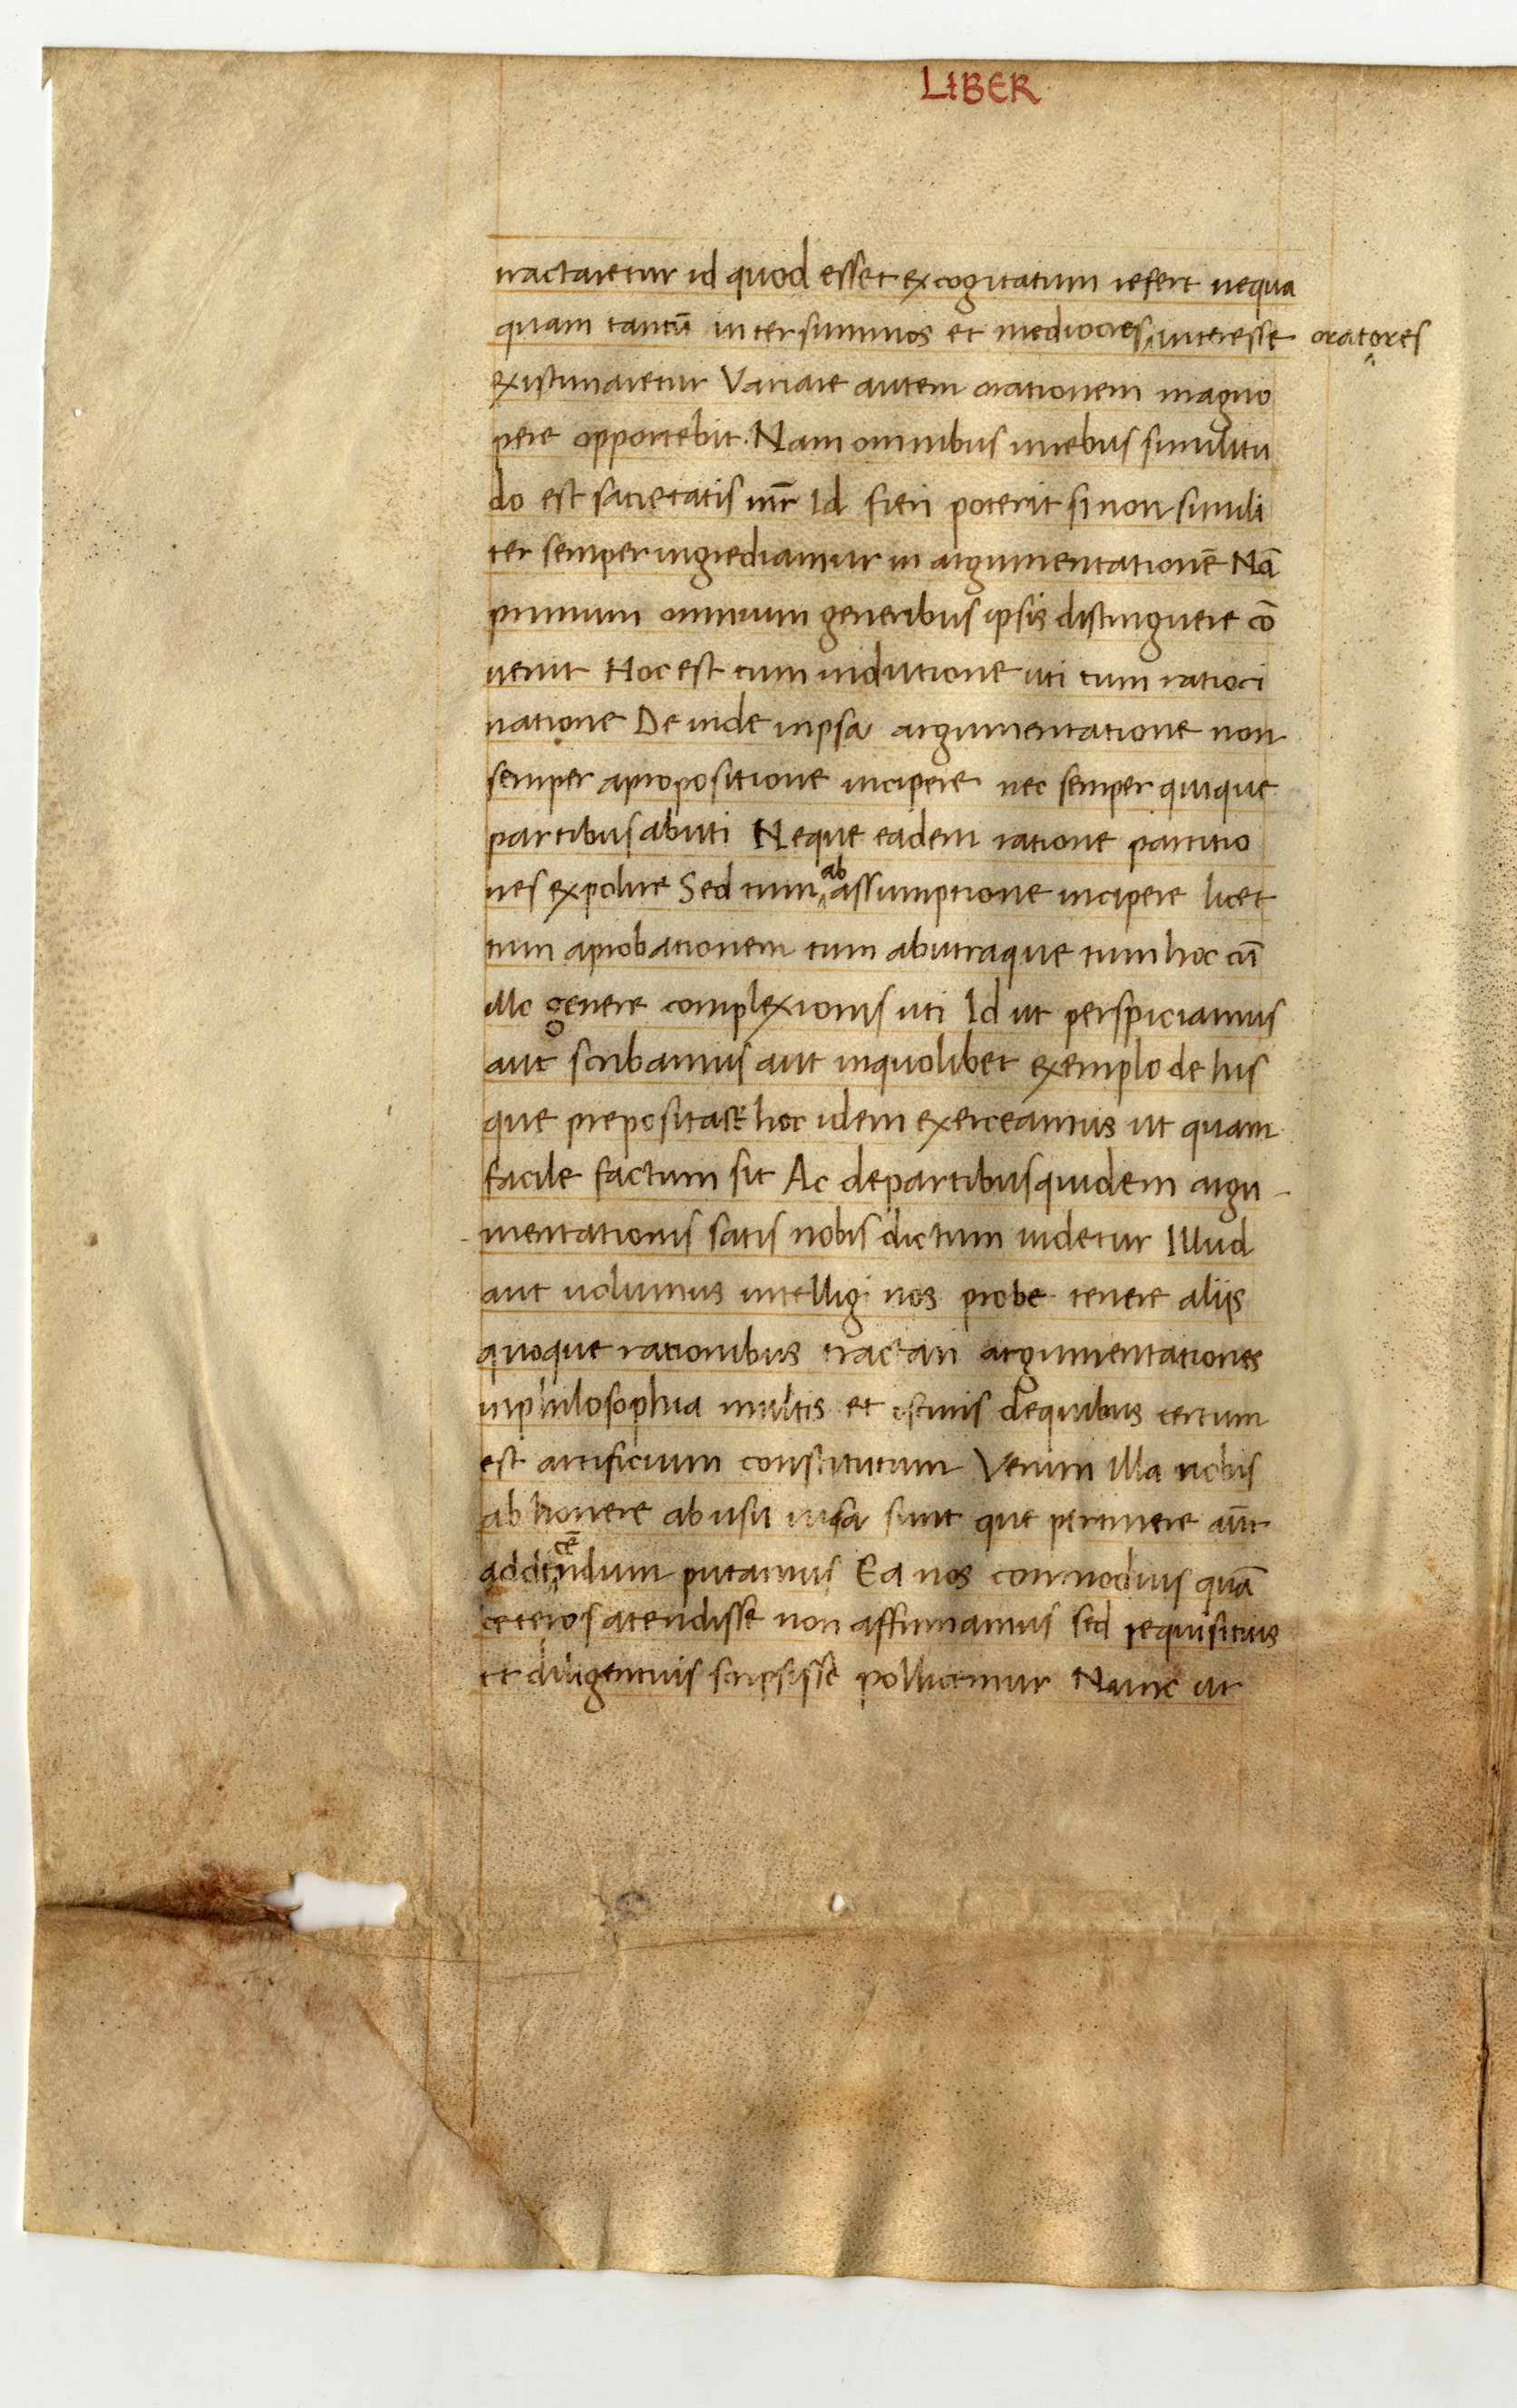 LIBER
tractaretur id quod esset excogitatum refert nequa
quam tantū inter summos et mediocres interesse oratores
existimaretur Variare autem orationem magno
pere opportebit. Nam omnibus inrebus similitu
do est satietatis mr̄ Id fieri poterit si non simili
ter semper ingrediamur in argumentationē Nā
primum omnium generibus ipsis distinguere cō
venit Hoc est tum indutione uti tum ratioci
natione De inde inpsa argumentatione non
semper apropositione incipere nec semper quique
partibus abuti Neque eadem ratione partitio
nes expolire Sed tum ab assumptione incipere licet
tum aprobationem tum abutraque tum hoc cū
illo genere complexionis uti Id ut perspiciamus
aut scribamus aut inquolibet exemplo de his
que prepositast hoc idem exerceamus ut quam
facile factum sit Ac departibus quidem argu-
mentationis satis nobis dictum videtur Illud
aut volumus intelligi nos probe tenere aliis
quoque rationibus tractari argumentationes
inphilosophia multis et dequibus certum
est artificium constitutum Verum illa nobis
abhonere abusu visa sunt que pertinere aūt
addicēndum putamus Ea nos commodius quā
ceteros atendisse non affirmamus sed requisitius
et diligentius scripsisse pollicemur Nunc ut